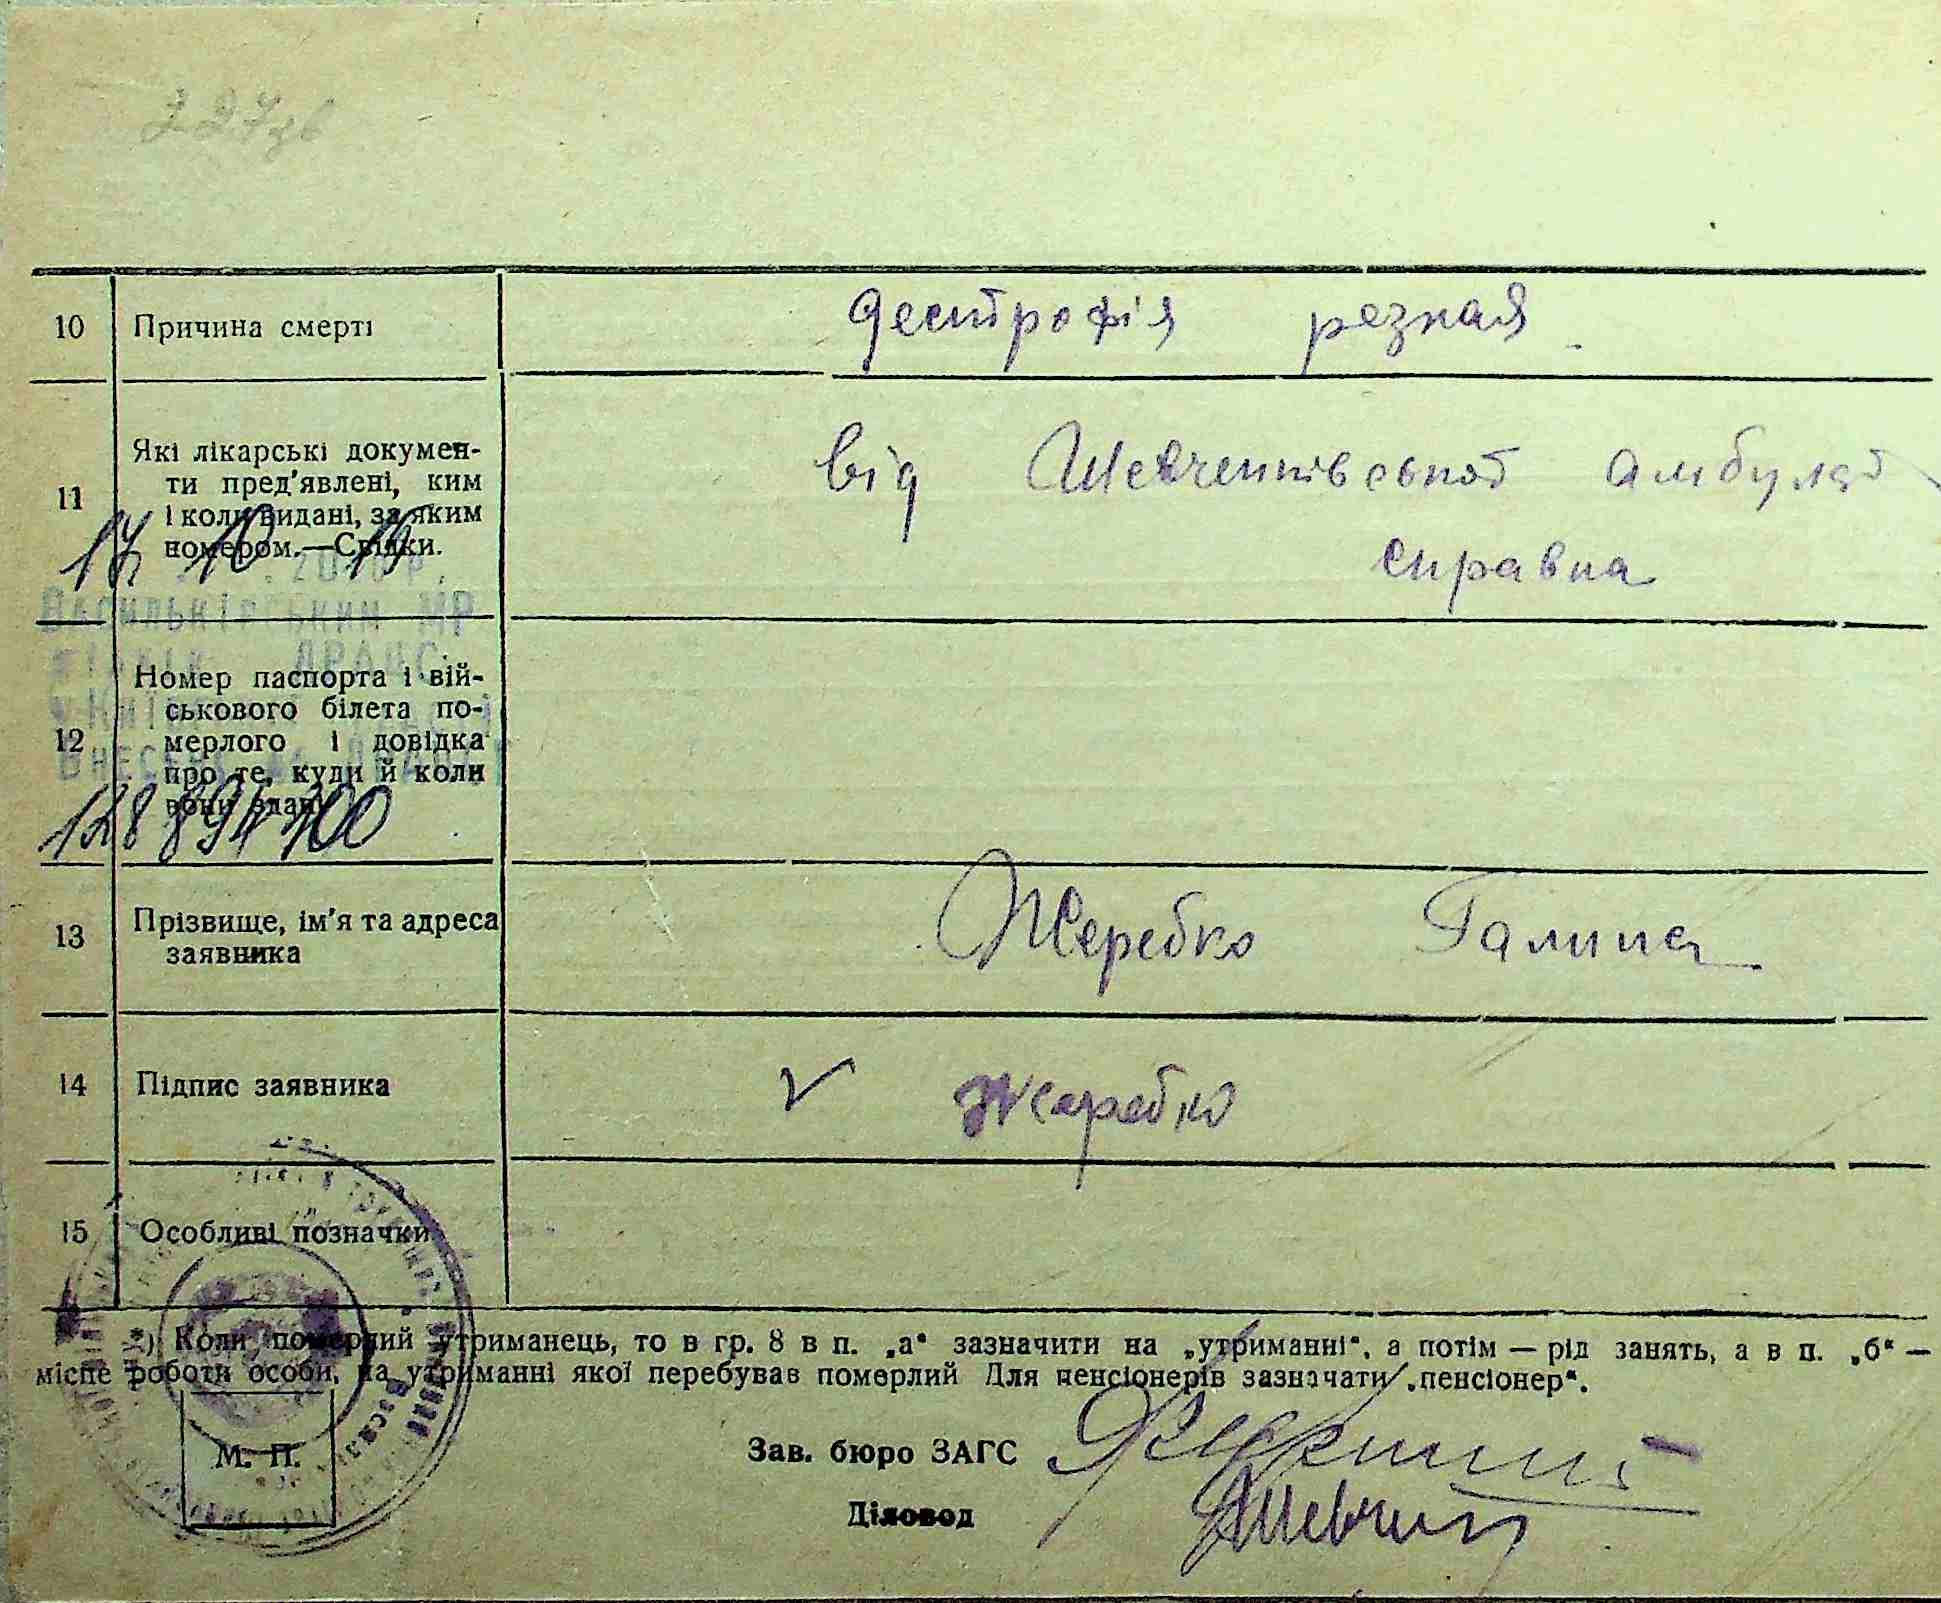 10 Причина смерті дестрофія резкая
11 Які лікарські докумен-
ти пред'явлені, ким
і коли видані, за яким
номером.—Свідки.
від Шевченківської амбулат
справка
17 10
Васильківський МР
12 Номер паспорта і вій-
ськового білета по-
мерлого і довідка
про те, куди й коли
вони здані
128 894 400
13 Прізвище, ім'я та адреса
заявника
Жеребко Галина
14 Підпис заявника Жеребко
15 Особливі позначки
*) Коли померлий утриманець, то в гр. 8 в п. „а“ зазначити на „утриманні“, а потім — рід занять, а в п. „б“ —
місце роботи особи, на утриманні якої перебував померлий Для пенсіонерів зазначати „пенсіонер“.
М. П.
Зав. бюро ЗАГС
Діловод